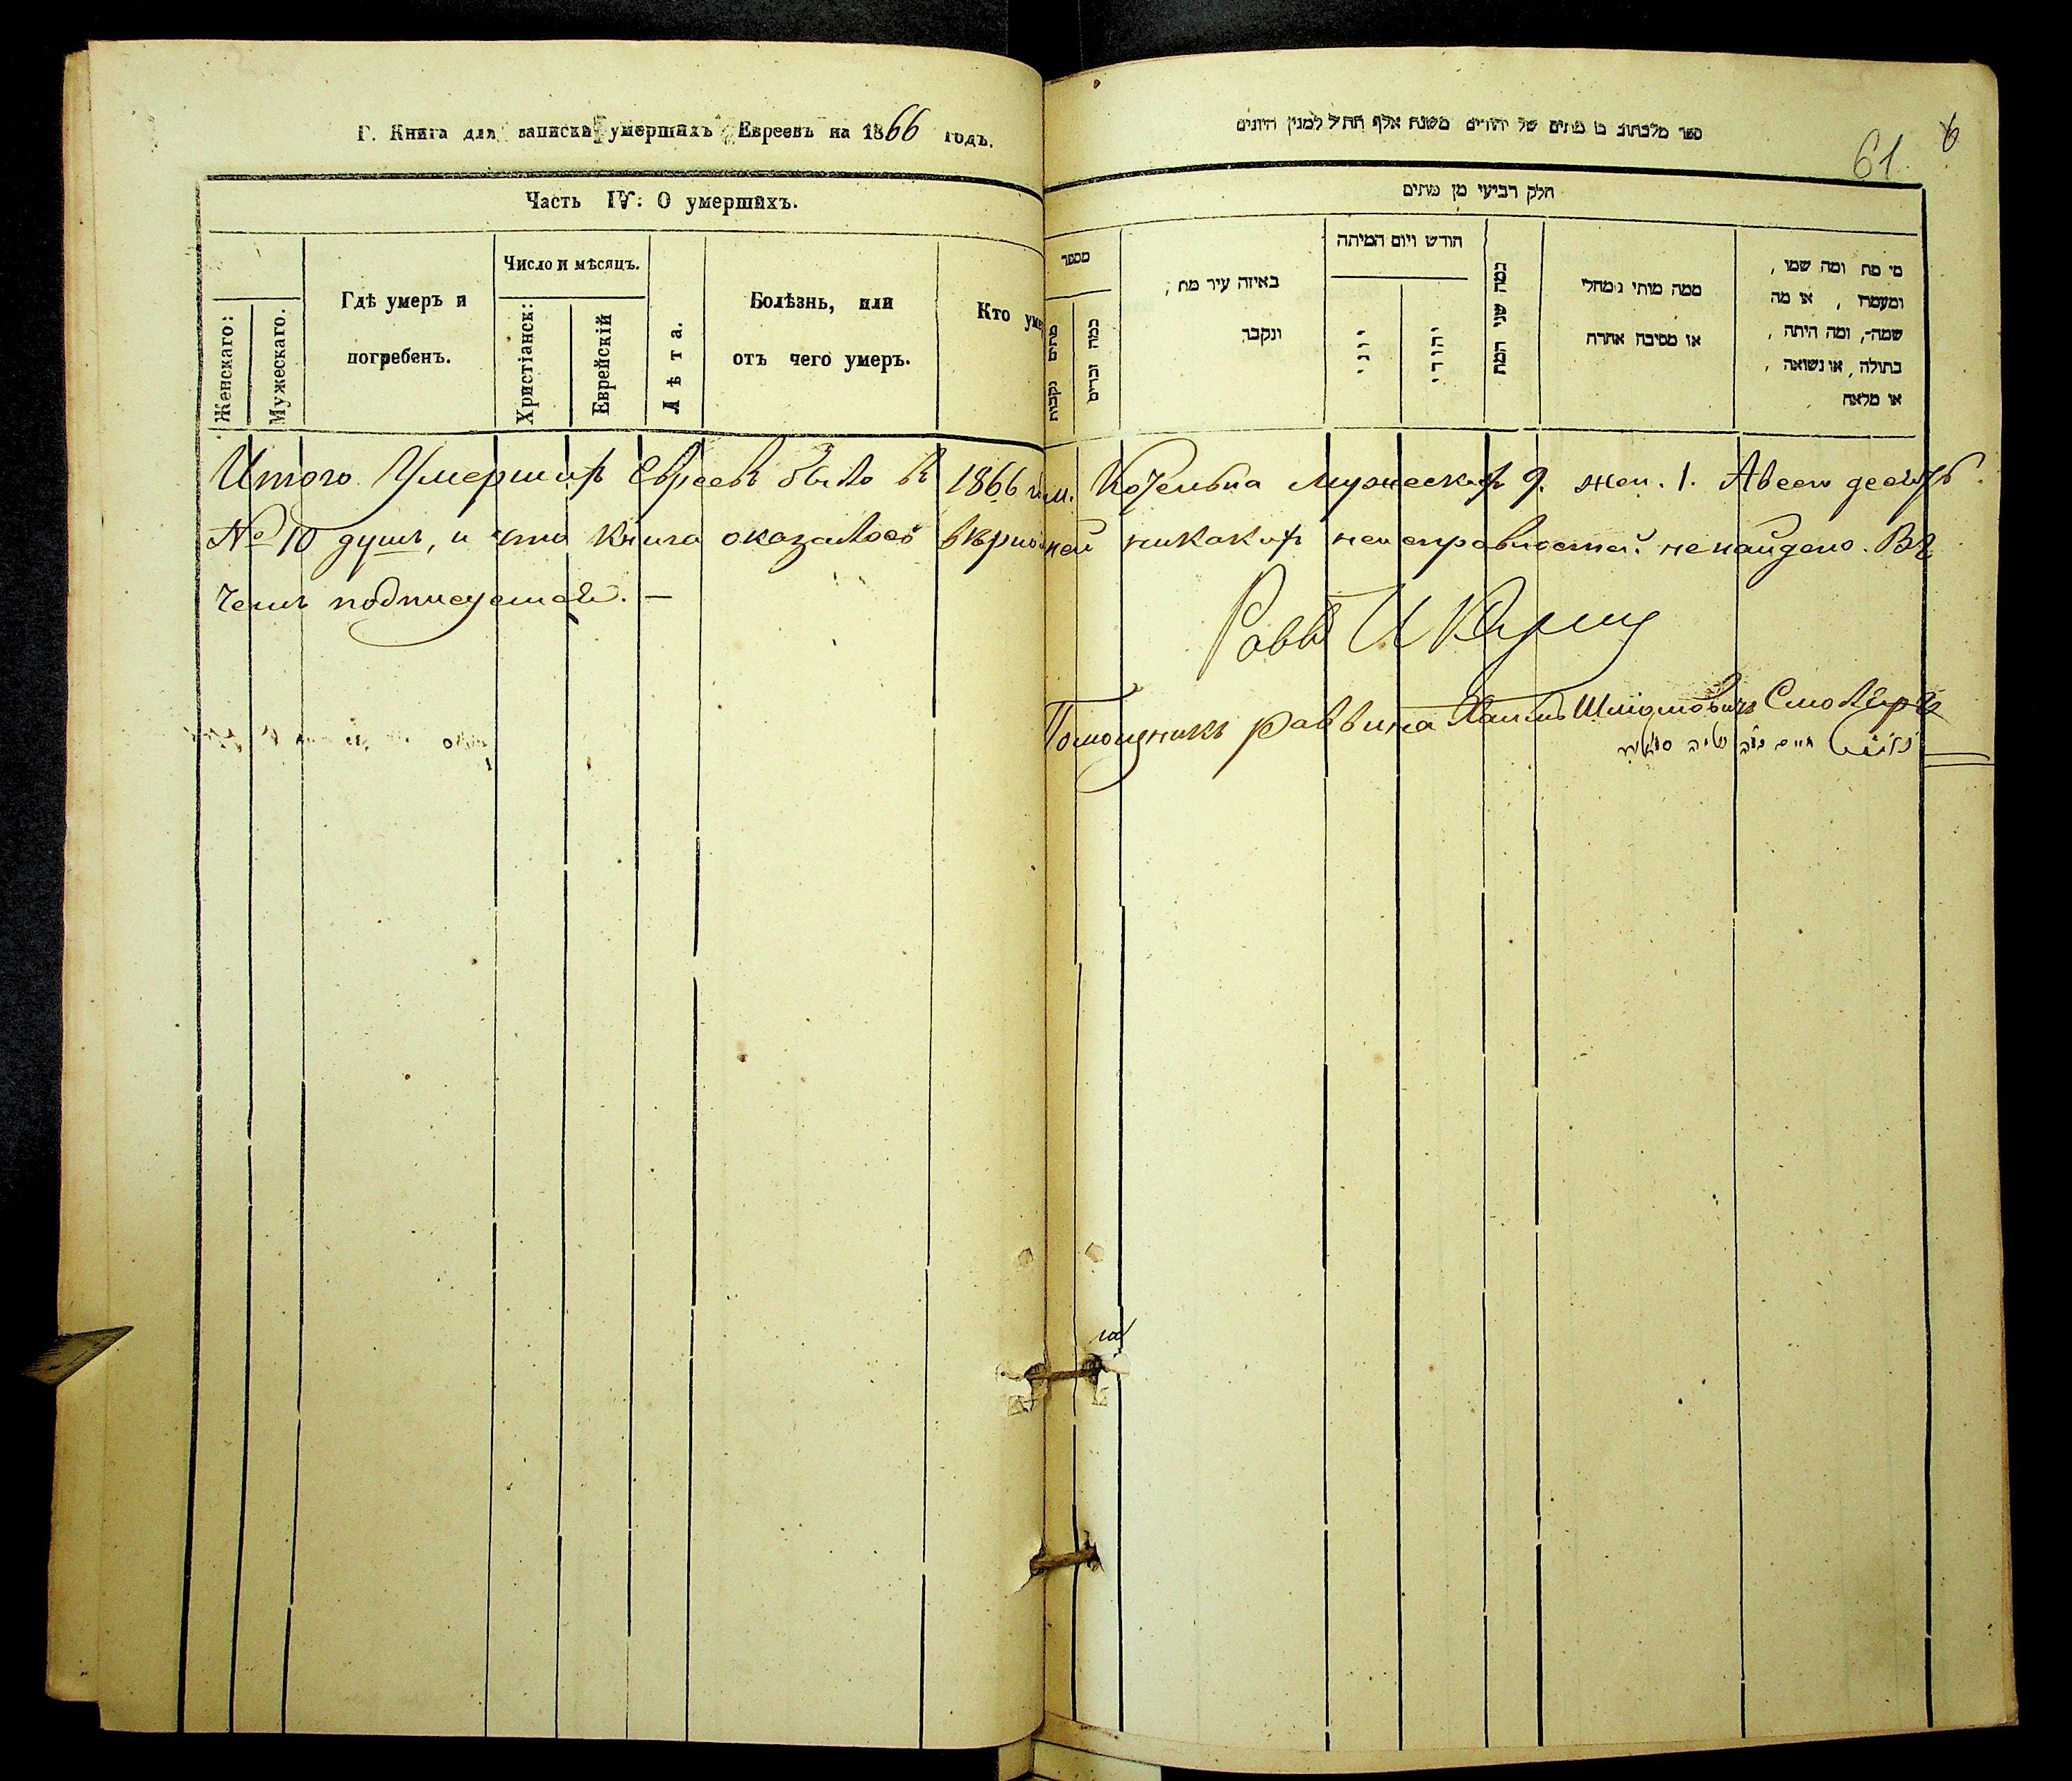 Г. Книга для записки умершихъ Евреевъ на 1866 годъ.
Часть IV: О умершихъ.
Женскаго:
Мужескаго.
Гдѣ умеръ и
погребенъ.
Число и мѣсяцъ.
Христіанск:
Еврейскій
Лѣта.
Болѣзнь, или
отъ чего умеръ.
Кто уме
ספר מלכתוב מן מתים של יהודים משנת אלף תתיל למנין היונים
61
6
חלק רביעי מן מתים
מספר
מתים נקבות
כמה זכרים
באיזה עיר מת,
ונקבר
חודש ויום המיתה
יוני
יהודי
כמה שני המת
ממה מותי ממחלי
או מסיבה אחרת
מי מת ומה שמו,
ומעמדו, או מה
שמה, ומה היתה,
בתולה, או נשואה,
או מלאה
Итого Умершихъ Евреевъ было въ 1866 м. Козельца Мужескихъ 9. жен. 1. Авсего десять
№ 10 душъ, и эта книга оказалось никакихъ неисправностей ненайдено. Въ
чемъ подписуемся. —
Равв И
Помощникъ раввина Хаимъ Шліомовичъ Столяръ
חיים